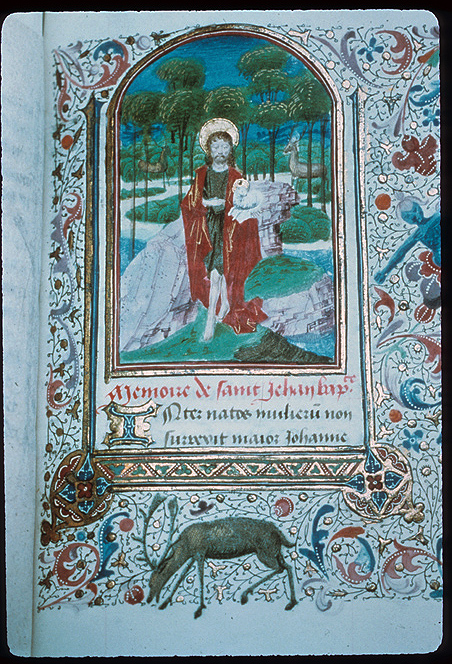 Memoire de saint Jehan bap^te
INter natos mulierū non
surrexit maior Johanne